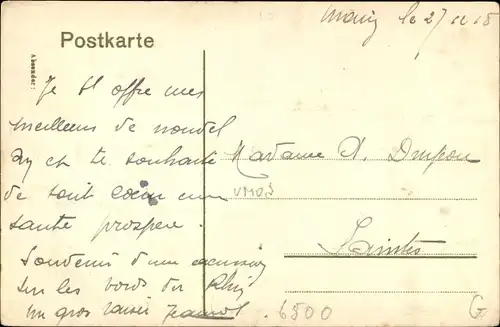 le 27
Postkarte
Absender:
Je t'offre mes
meilleurs de nouvel
an et te souhaite
de tout cœur une
santé prospère.
Souvenir d'une excursion
sur les bords du Rhin
Un gros baiser
Madame
Saintes
6500
G